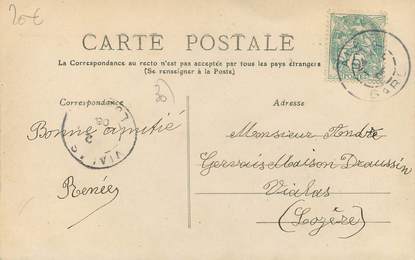 20€
CARTE POSTALE
La Correspondance au recto n'est pas acceptée par tous les pays étrangers
(Se renseigner à la Poste)
Correspondance
Adresse
Bonne amitié
Renée
Monsieur André
Gervais Maison Draussin
Vialas
(Lozère)
VIALAS
GARD